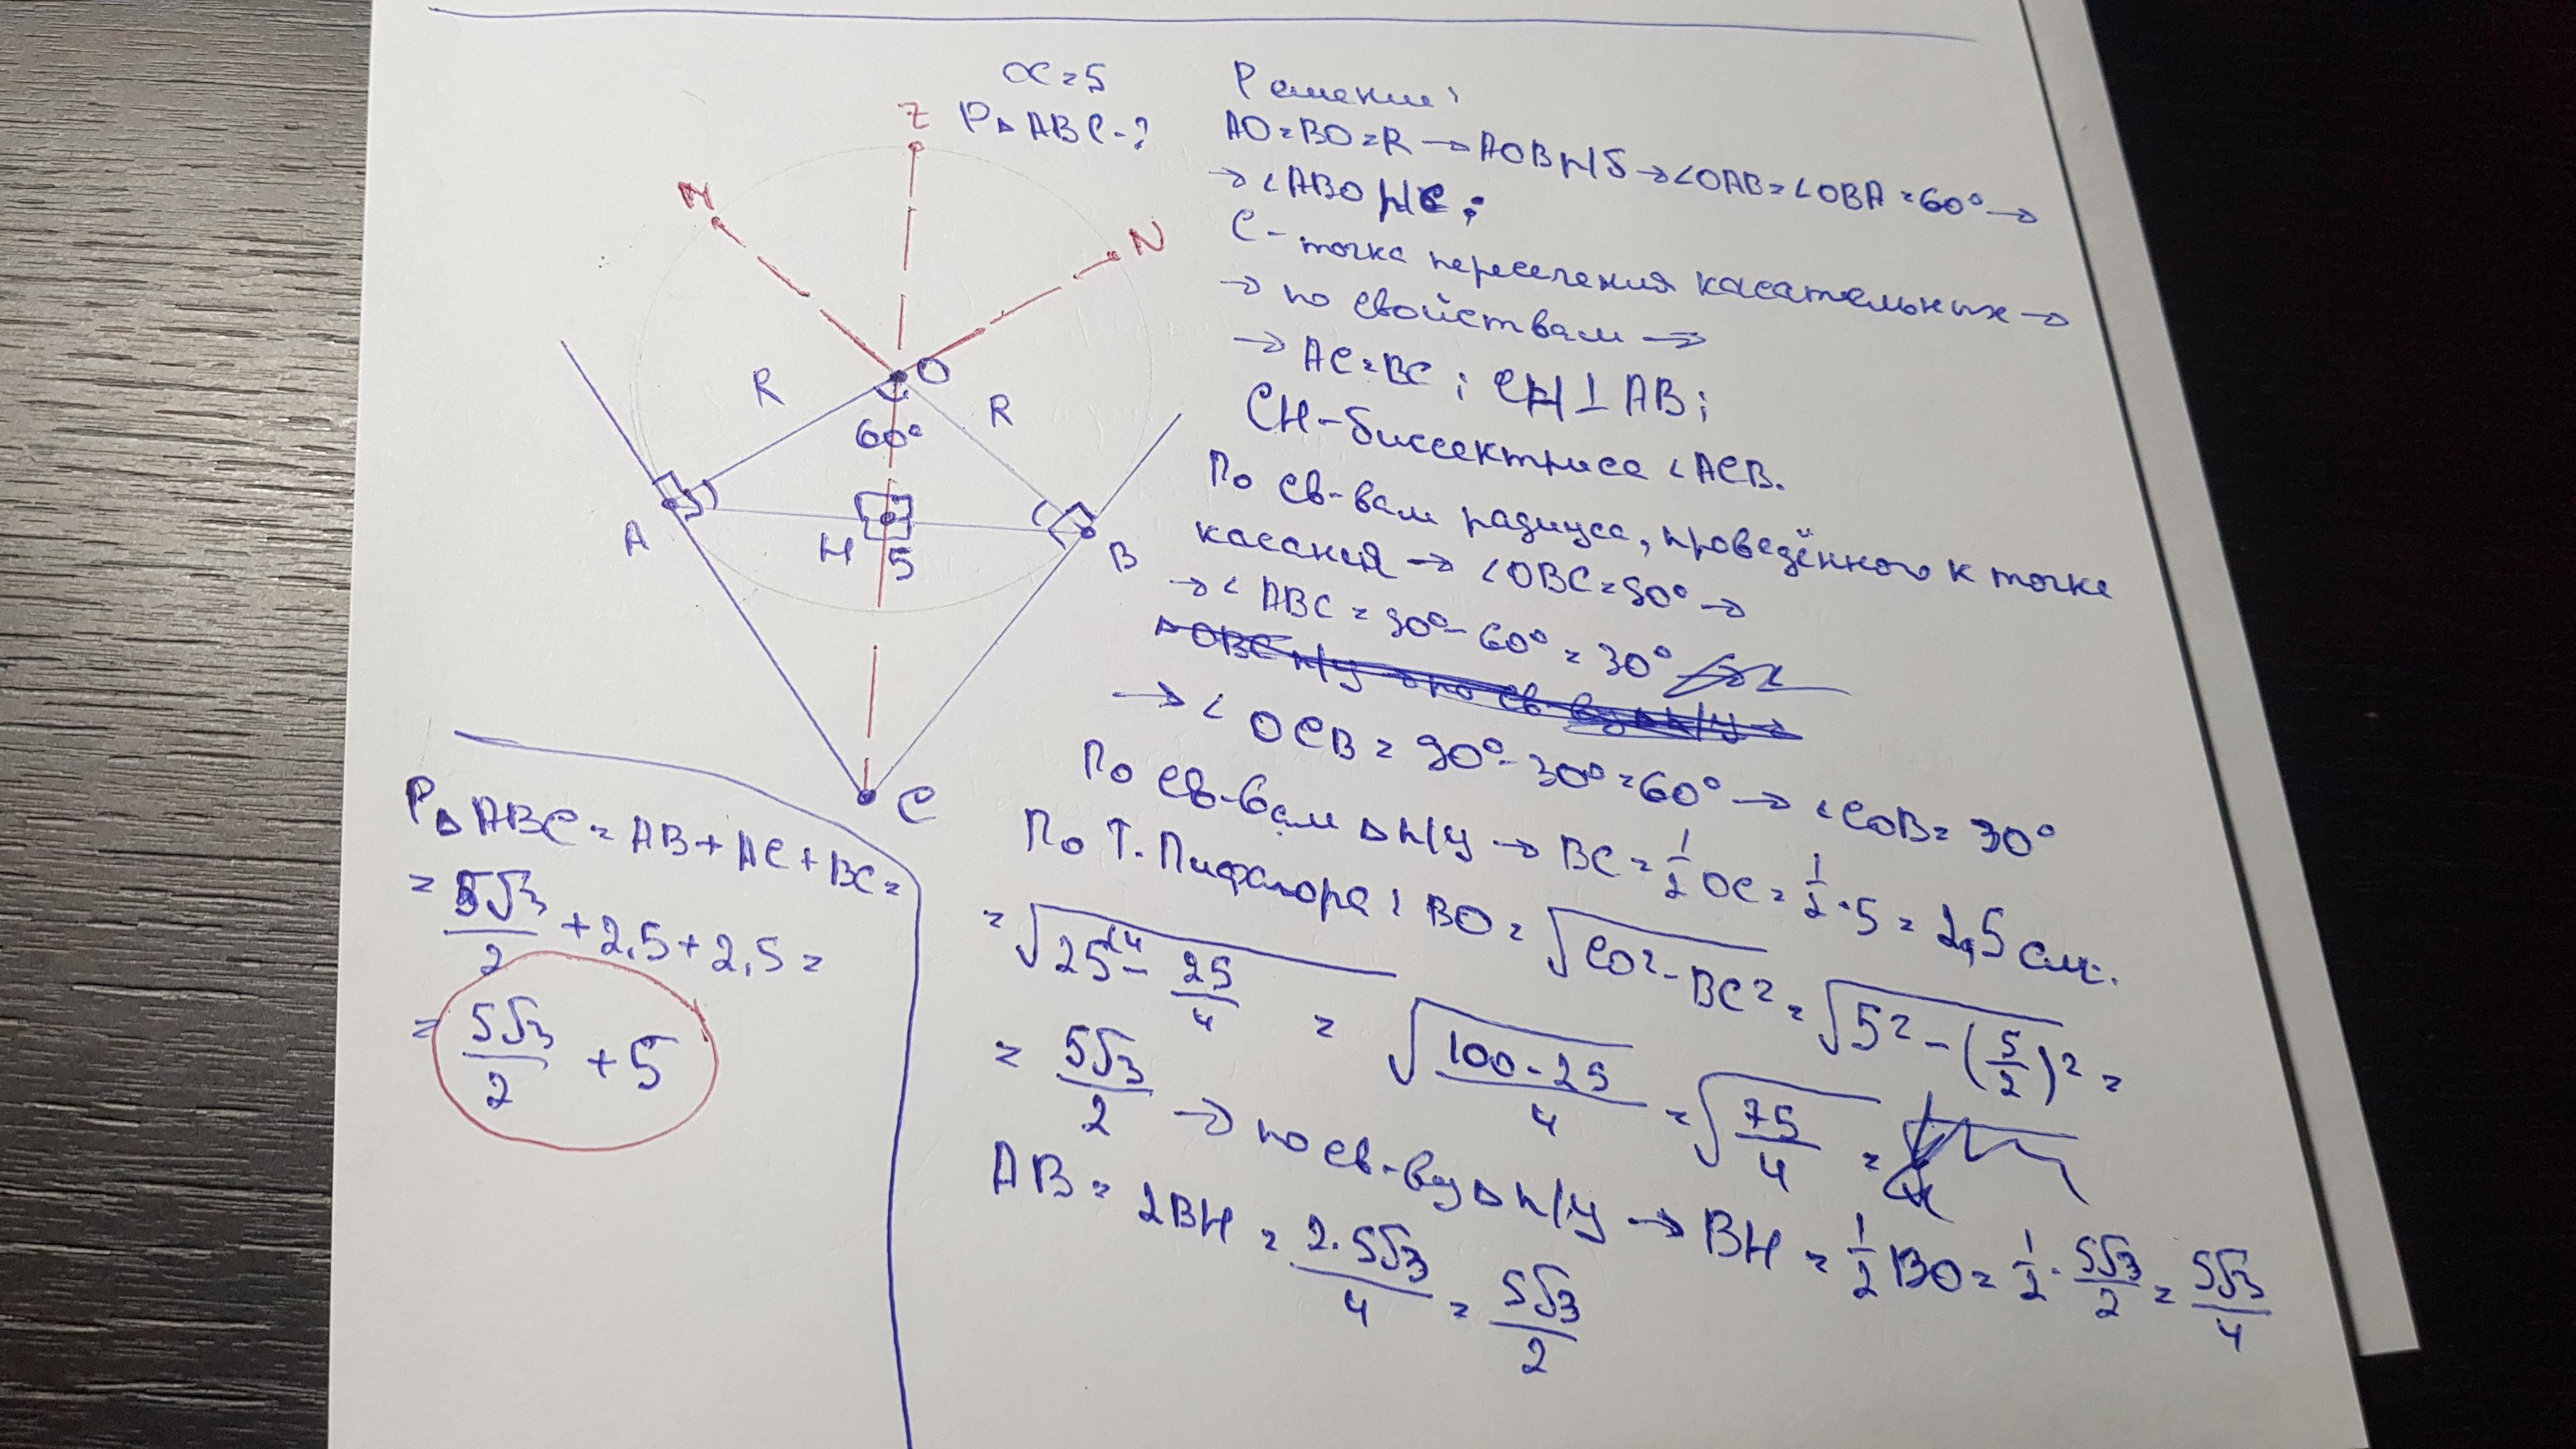 OC=5
P△ABC-?
Z
M
N
O
R
R
60°
A
H
5
B
C
Решение:
AO=BO=R → AOB р/б → ∠OAB=∠OBA=60° →
→ ∠ABO р/с;
C - точка пересечения касательных →
→ по свойствам →
→ AC=BC; CH ⊥ AB;
CH - биссектриса ∠ACB.
По св-вам радиуса, проведённого к точке
касания → ∠OBC=90° →
→ ∠ABC = 90° - 60° = 30°
→ ∠OCB = 90° - 30° = 60° → ∠COB = 30°
По св-вам △ п/у → BC = 1/2 OC = 1/2 · 5 = 2,5 см.
По Т. Пифагора: BO = √(CO² - BC²) = √(5² - (5/2)²) =
= √(25 - 25/4) = √((100 - 25)/4) = √(75/4) =
= 5√3/2 → по св-ву △ п/у → BH = 1/2 BO = 1/2 · 5√3/2 = 5√3/4
AB = 2BH = 2·5√3/4 = 5√3/2
P△ABC = AB + AC + BC =
= 5√3/2 + 2,5 + 2,5 =
= 5√3/2 + 5